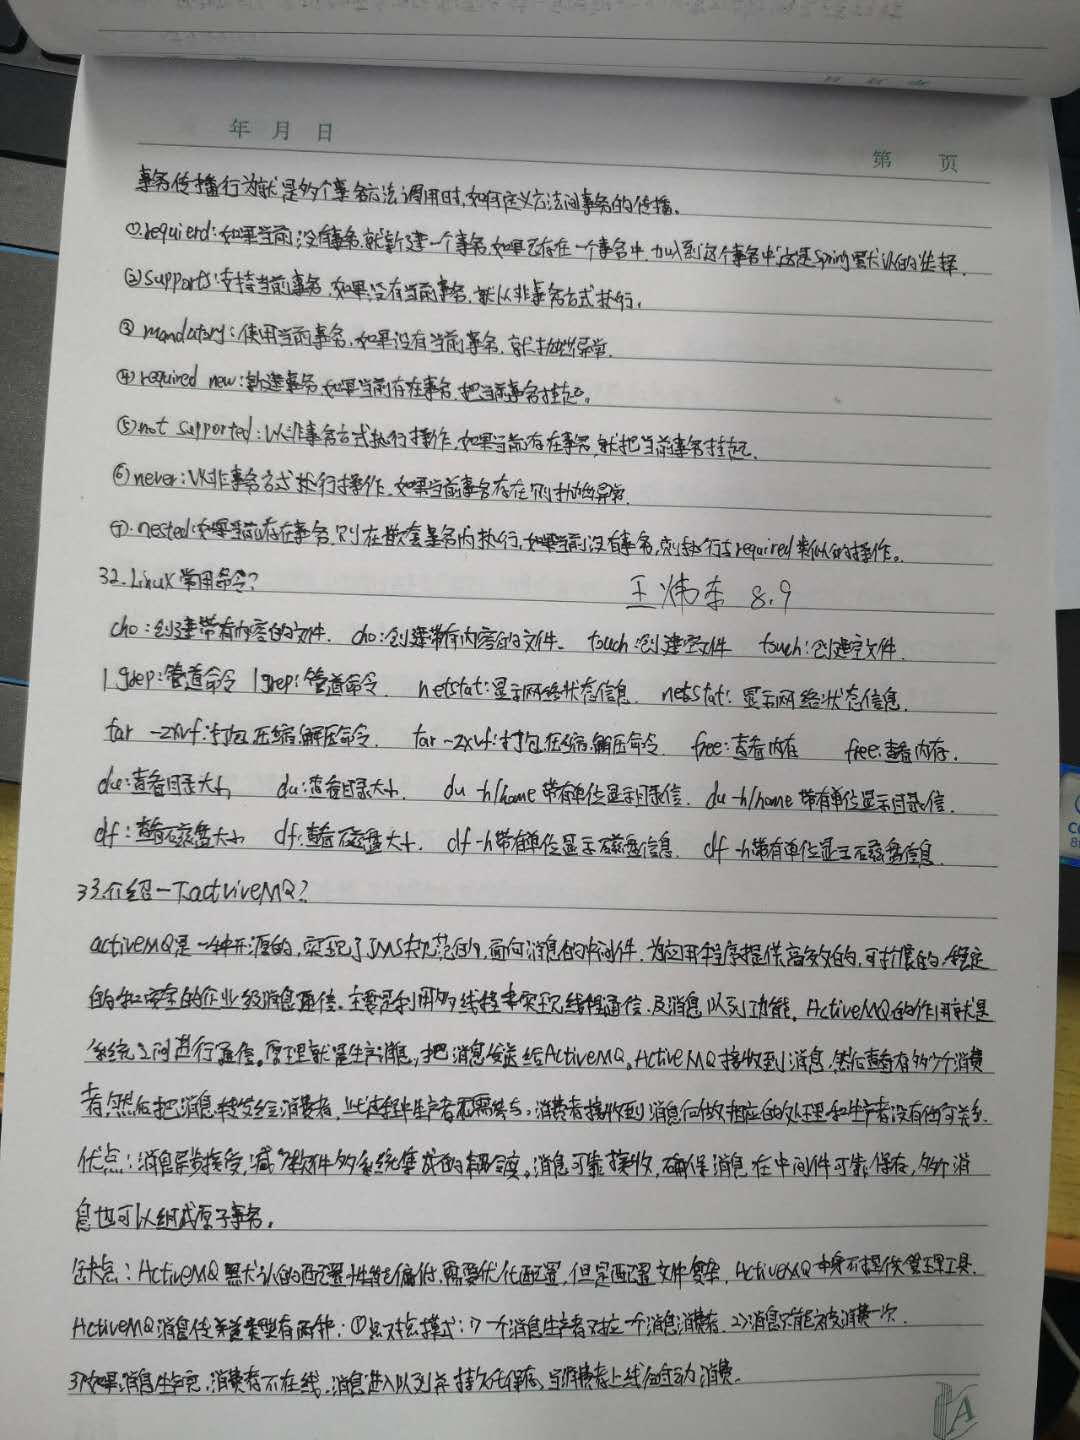 年 月 日
第 页
事务传播行为就是多个事务方法调用时,如何定义方法间事务的传播。
①requierd:如果当前没有事务,就新建一个事务,如果已存在一个事务中,加入到这个事务中,这是Spring默认的选择.
②supports:支持当前事务,如果没有当前事务,就以非事务方式执行.
③mandatory:使用当前事务,如果没有当前事务,就抛出异常.
④required new:新建事务,如果当前存在事务,把当前事务挂起。
⑤not supported:以非事务方式执行操作,如果当前存在事务,就把当前事务挂起.
⑥never:以非事务方式执行操作,如果当前事务存在,则抛出异常.
⑦.nested:如果当前存在事务,则在嵌套事务内执行,如果当前没有事务,则执行与required类似的操作。
32.Linux常用命令?
王炜东 8.9
cho:创建带有内容的文件. cho:创建带有内容的文件. touch:创建空文件 touch:创建空文件.
|grep:管道命令 |grep:管道命令. netstat:显示网络状态信息. netsstat:显示网络状态信息.
tar -zxvf:打包压缩,解压命令. tar -zxvf:打包压缩,解压命令. free:查看内存 free:查看内存.
du:查看目录大小 du:查看目录大小. du -h/home 带有单位显示目录信. du -h/home 带有单位显示目录信.
df:查看磁盘大小 df:查看磁盘大小. df -h带有单位显示磁盘信息. df -h带有单位显示磁盘信息.
33.介绍一下activeMQ?
activeMQ是一种开源的,实现了JMS规范的,面向消息的中间件,为应用程序提供高效的,可扩展的,稳定
的和安全的企业级消息通信.主要是利用多线程来实现线程通信,及消息队列功能。ActiveMQ的作用就是
系统之间进行通信。原理就是生产消息,把消息发送给ActiveMQ,ActiveMQ接收到消息,然后查看有多少个消费
者,然后把消息转发给消费者,此过程中生产者无需参与,消费者接收到消息何做相应的处理和生产者没有任何关系.
优点:消息异步接受,减少软件多系统集成的耦合度。消息可靠接收,确保消息在中间件可靠保存,多个消
息也可以组成原子事务。
缺点:ActiveMQ默认的配置性能偏低,需要优化配置,但是配置文件复杂,ActiveMQ本身不提供管理工具.
ActiveMQ消息传递类型有两种:①点对点模式:1)一个消息生产者对应一个消息消费者.2)消息只能被消费一次.
3)如果消息生产完,消费者不在线,消息进入队列并持久化保存,当消费者上线后自动消费.